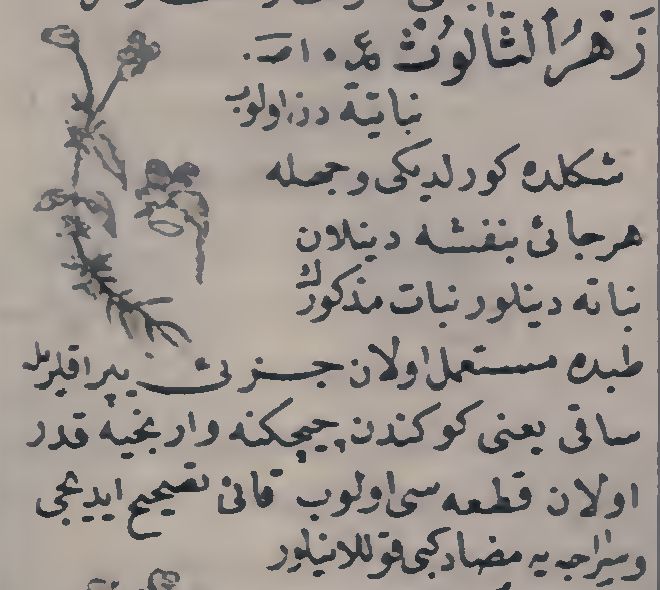 زَهْرُ الثّالُوثْ
نباتيّة دن اولوب
شكلده كورلديكى وجهله
هرجائى بنفشه دينلان
نباته دينلور نبات مذكورك
طبده مستعمل اولان جزئى يپراقلريله
ساقى يعنى كوكندن چيچكنه وارنجيه قدر
اولان قطعه سى اولوب قانى تصحيح ايديجى
وسراجه يه مضاد كبى قوللانيلور